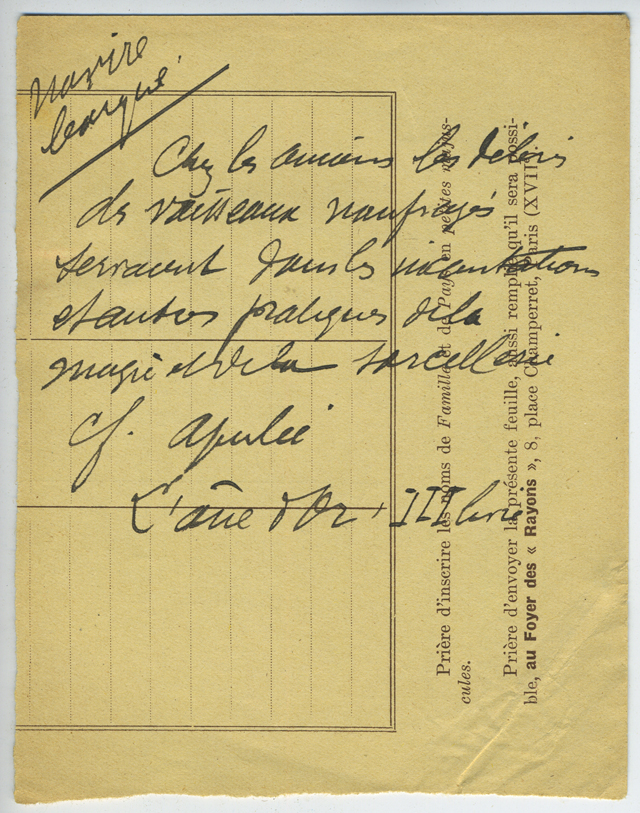 navire
barque
Chez les anciens les débris
de vaisseaux naufragés
servaient dans les incantations
et autres pratiques de la
magie et de la sorcellerie
cf. Apulée
L'âne d'Or III livre
Prière d'inscrire les noms de Famille et de Pays en petites majus-
cules.
Prière d'envoyer la présente feuille, aussi remplie qu'il sera possi-
ble, au Foyer des « Rayons », 8, place Champerret, Paris (XVII